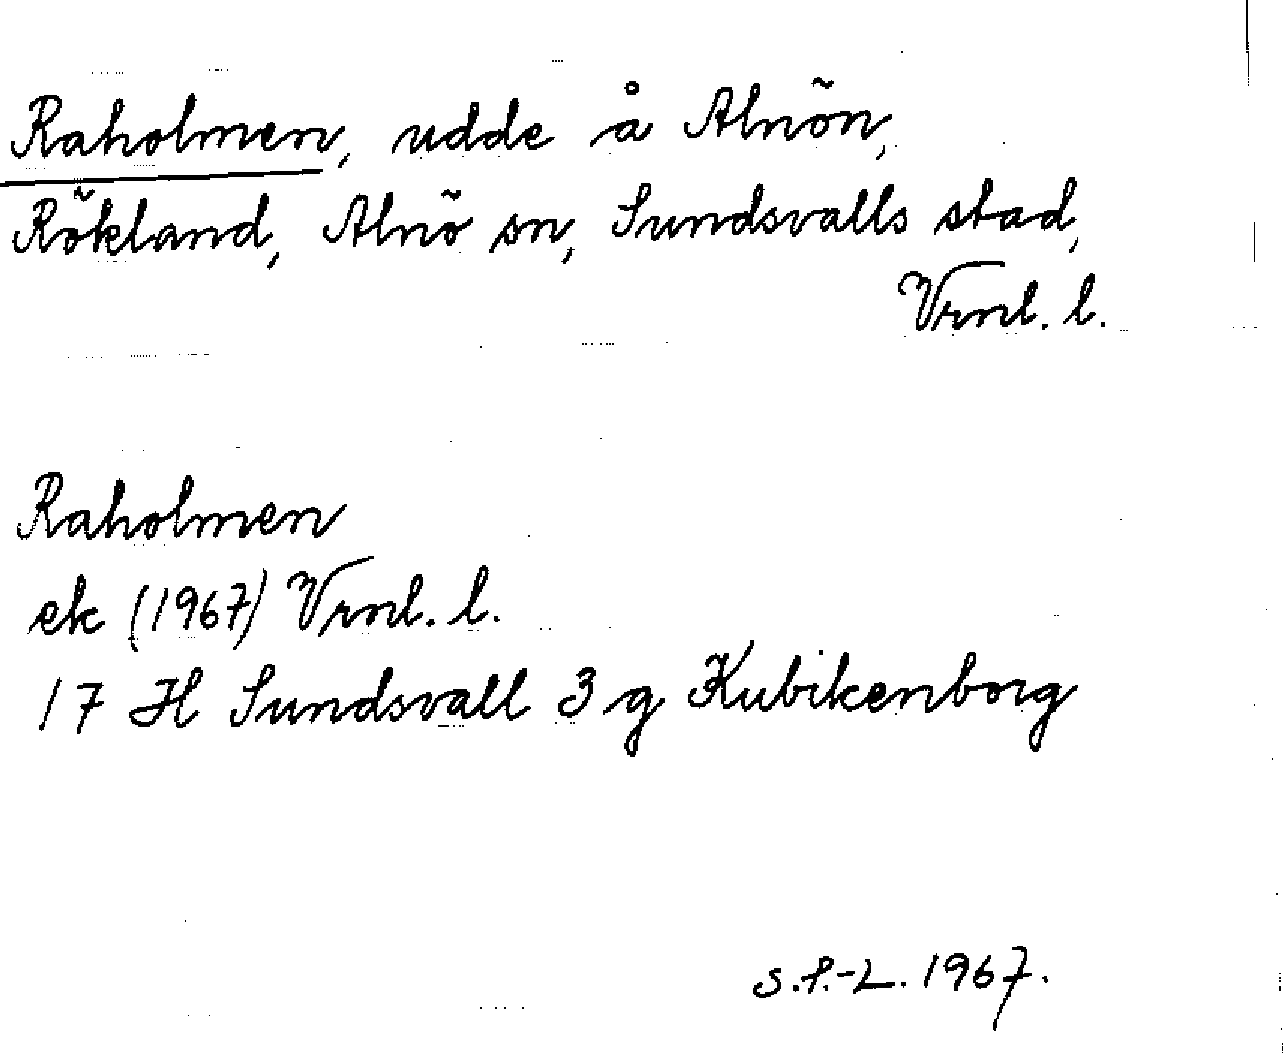 Raholmen, udde å Alnön,
Rökland, Alnö sn, Sundsvalls stad,
Vrnl. l.
Raholmen
ek (1967) Vrnl. l.
17 H Sundsvall 3 g Kubikenborg
S.P.-L. 1967.